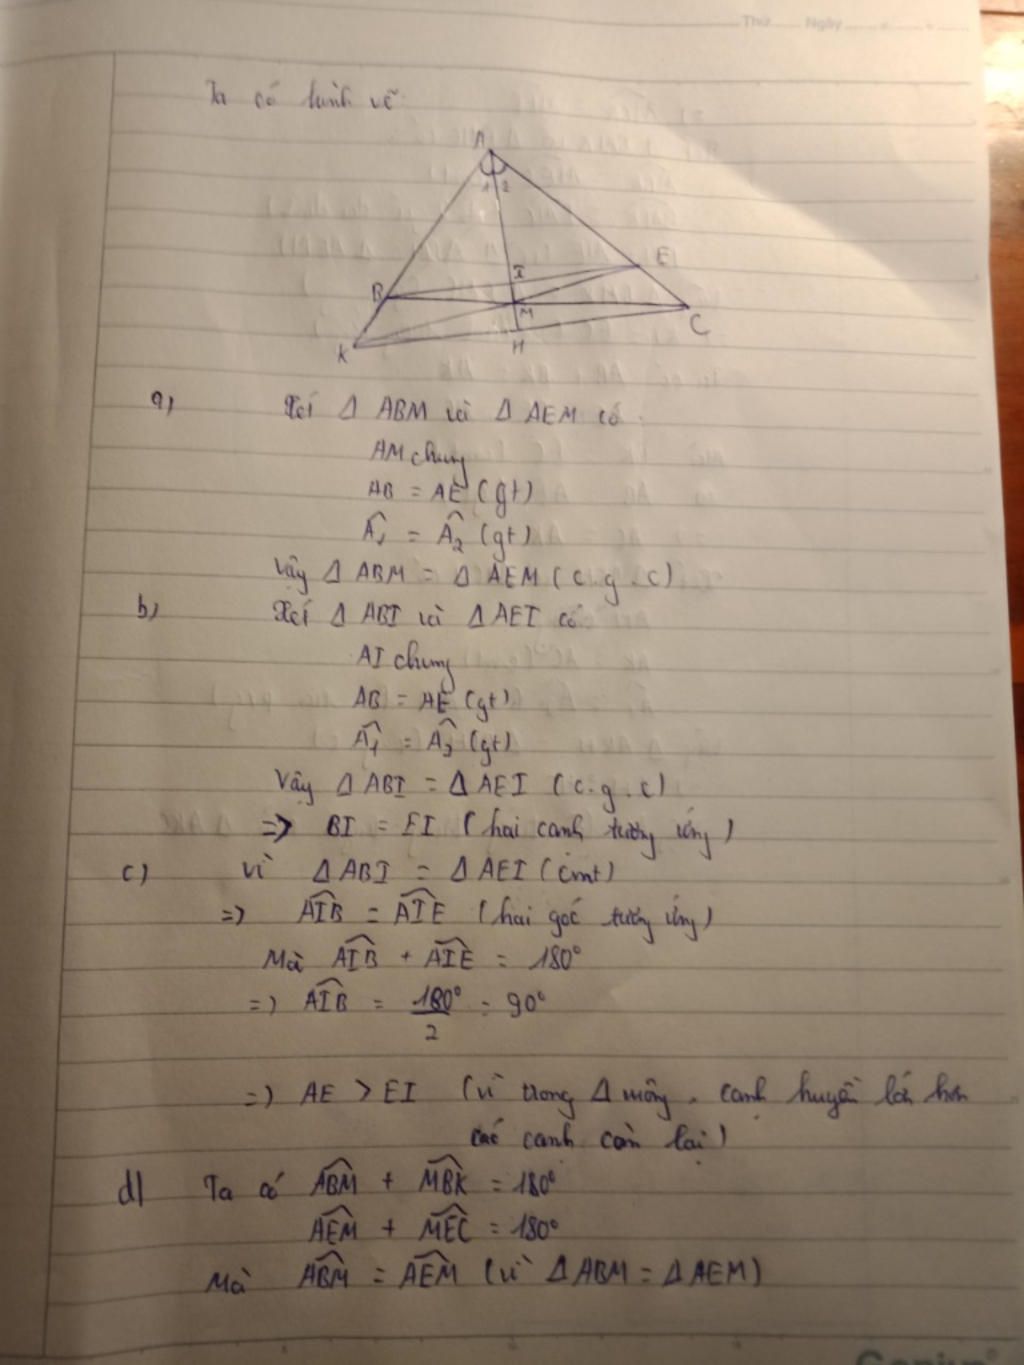 Thứ ..... Ngày
Ta có hình vẽ
A
1 2
E
I
B
M
C
K
H
a) Xét Δ ABM và Δ AEM có
AM chung
AB = AE (gt)
Â₁ = Â₂ (gt)
Vậy Δ ABM = Δ AEM (c.g.c)
b) Xét Δ ABI và Δ AEI có
AI chung
AB = AE (gt)
Â₁ = Â₂ (gt)
Vậy Δ ABI = Δ AEI (c.g.c)
=> BI = EI (hai cạnh tương ứng)
c) Vì Δ ABI = Δ AEI (cmt)
=> \widehat{AIB} = \widehat{AIE} (hai góc tương ứng)
Mà \widehat{AIB} + \widehat{AIE} = 180°
=> \widehat{AIB} = 180°/2 = 90°
=> AE > EI (vì trong Δ vuông, cạnh huyền lớn hơn
các cạnh còn lại)
d) Ta có \widehat{ABM} + \widehat{MBK} = 180°
\widehat{AEM} + \widehat{MEC} = 180°
Mà \widehat{ABM} = \widehat{AEM} (vì Δ ABM = Δ AEM)